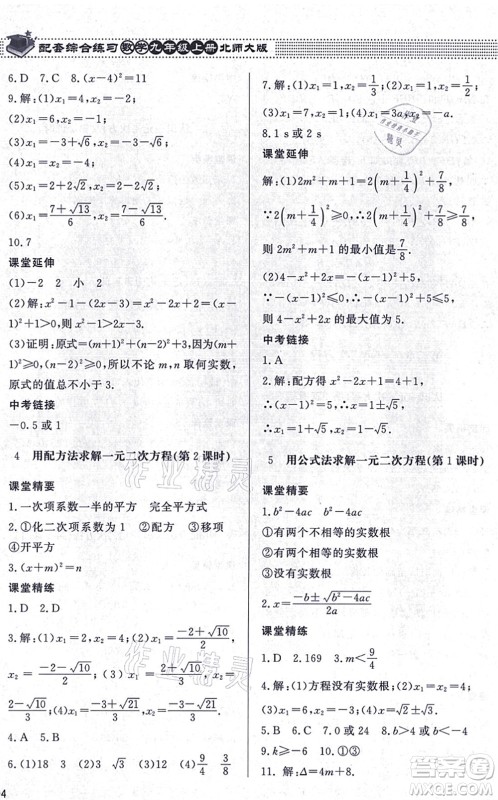 配套综合练习 数学九年级上册 北师大版
6.D 7.D 8.(x-4)²=11
9.解:(1)x₁=4,x₂=-2;
(2)x₁=6,x₂=-1;
(3)x₁=-1+√6,x₂=-1-√6;
(4)x₁=x₂=-4;
(5)x₁=2+2√2,x₂=2-2√2;
(6)x₁=(7+√13)/6,x₂=(7-√13)/6.
10.7
课堂延伸
(1)-2 2 小 2
(2)解:x²-1-(2x-3)=x²-2x+2=(x-1)²+1>0,则x²-1>2x-3.
(3)证明:原式=(m+1)²+(n-
·2)²+3≥3,所以不论m,n取何实数,
原式的值总不小于3.
中考链接
-0.5或1
4 用配方法求解一元二次方程(第2课时)
课堂精要
1.一次项系数一半的平方 完全平方式
2.①化二次项系数为1 ②配方 ③移项
④开平方
3.(x+m)²=n
课堂精练
1.D 2.D
3.解:(1)x₁=2,x₂=1;(2)x₁=(-2+√10)/2,x₂=(-2-√10)/2;(3)x₁=(-2+√10)/3,x₂=
(2-√10)/3;(4)x₁=(-3+√21)/3,x₂=(-3-√21)/3.
4.A 5.B
6.(1)18 3 (2)3 √3 (3)2 (4)9/4 3/8
94
7.解:(1)m₁=m₂=√2;(2)x₁=1/3,x₂=
3;(3)x₁=7,x₂=1;(4)x₁=3a,x₂=-a.
8.1 s或2 s
课堂延伸
解:(1)2m²+m+1=2(m+1/4)²+7/8,
∵2(m+1/4)²≥0,∴2(m+1/4)²+7/8≥7/8,
则2m²+m+1的最小值是7/8.
(2)4-x²+2x=-(x-1)²+5,
∵-(x-1)²≤0,∴-(x-1)²+5≤5,
则4-x²+2x的最大值是5.
中考链接
1.A
2.解:配方得x²-2x+1=4+1,
∴(x-1)²=5.∴x=1±√5,
∴x₁=1+√5,x₂=1-√5.
5 用公式法求解一元二次方程(第1课时)
课堂精要
1.b²-4ac
①有两个不相等的实数根
②有两个相等的实数根
③没有实数根
2.x=(-b±√(b²-4ac))/2a
课堂精练
1.D 2.169 3.m<9/4
4.解:(1)方程没有实数根;
(2)方程有两个不相等的实数根.
5.B 6.C 7.0或24 8.b<-4
9.k≥-1 10.①③
11.解:Δ=4m²+8m.
作业精灵
作业精灵